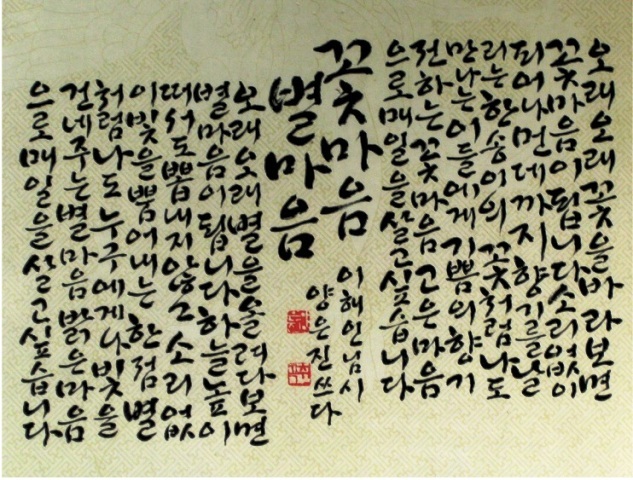 오래오래 꽃을 바라보면
꽃마음이 됩니다 소리없이
피어나 먼데까지 향기를 날
리는 한송이의 꽃처럼 나도
만나는 이들에게 기쁨의 향기
전하는 꽃마음 고은마음
으로 매일을 살고싶습니다
꽃마음
별마음
이해인님 시
양은진 쓰다
오래오래 별을 올려다보면
별마음이 됩니다 하늘높이
떠서도 뽐내지않고 소리없
이 빛을 뿜어내는 한점 별
처럼 나도 누구에게나 빛을
건네주는 별마음 밝은마음
으로 매일을 살고싶습니다